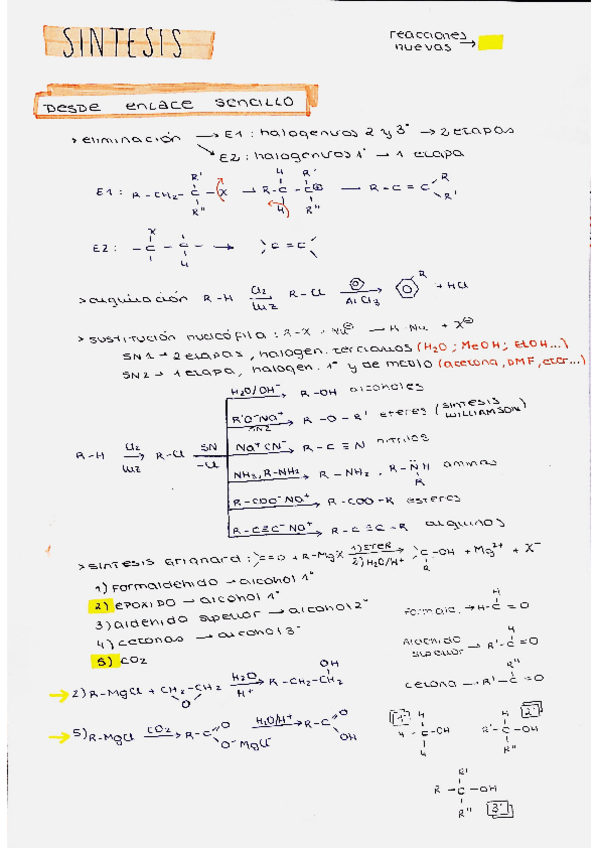 SINTESIS
reacciones
nuevas →
DESDE ENLACE SENCILLO
> eliminación → E1: halogenuros 2 y 3° → 2 etapas
→ E2: halogenuros 1° → 1 etapa
E1: R-CH₂-C-X → R-C-C⊕ → R-C=C
R' R" R' R" R R'
E2: -C-C- → C=C
X
> alquilación R-H Cl₂ luz R-Cl AlCl₃ R + HCl
> sustitución nucleófila: R-X + Nu⊖ → R-Nu + X⊖
SN1 → 2 etapas, halogen. terciarios (H₂O; MeOH; EtOH...)
SN2 → 1 etapa, halogen. 1° y de metilo (acetona, DMF, eter...)
H₂O/OH⁻ → R-OH alcoholes
R'O⁻Na⁺ SN2 → R-O-R' eteres (SINTESIS WILLIAMSON)
R-H Cl₂ luz → R-Cl SN -Cl Na⁺CN⁻ → R-C≡N nitrilos
NH₃, R-NH₂ → R-NH₂, R-N̈H R aminas
R-COO⁻Na⁺ → R-COO-R esteres
R-C≡C⁻Na⁺ → R-C≡C-R alquinos
> sintesis Grignard: C=O + R-MgX 1) ETER 2) H₂O/H⁺ → C-OH + Mg²⁺ + X⁻
R
1) Formaldehido → alcohol 1°
2) EPOXIDO → alcohol 1°
3) aldehido superior → alcohol 2°
4) cetonas → alcohol 3°
5) CO₂
Formalde. → H-C=O
H
Aldehido superior → R'-C=O
cetona → R'-C=O
R"
→ 2) R-MgCl + CH₂-CH₂ O H₂O H⁺ → R-CH₂-CH₂ OH
→ 5) R-MgCl CO₂ → R-C O O⁻MgCl H₂O/H⁺ → R-C O OH
1° C-OH
2° R'-C-OH H R"
R-C-OH R' R" 3°